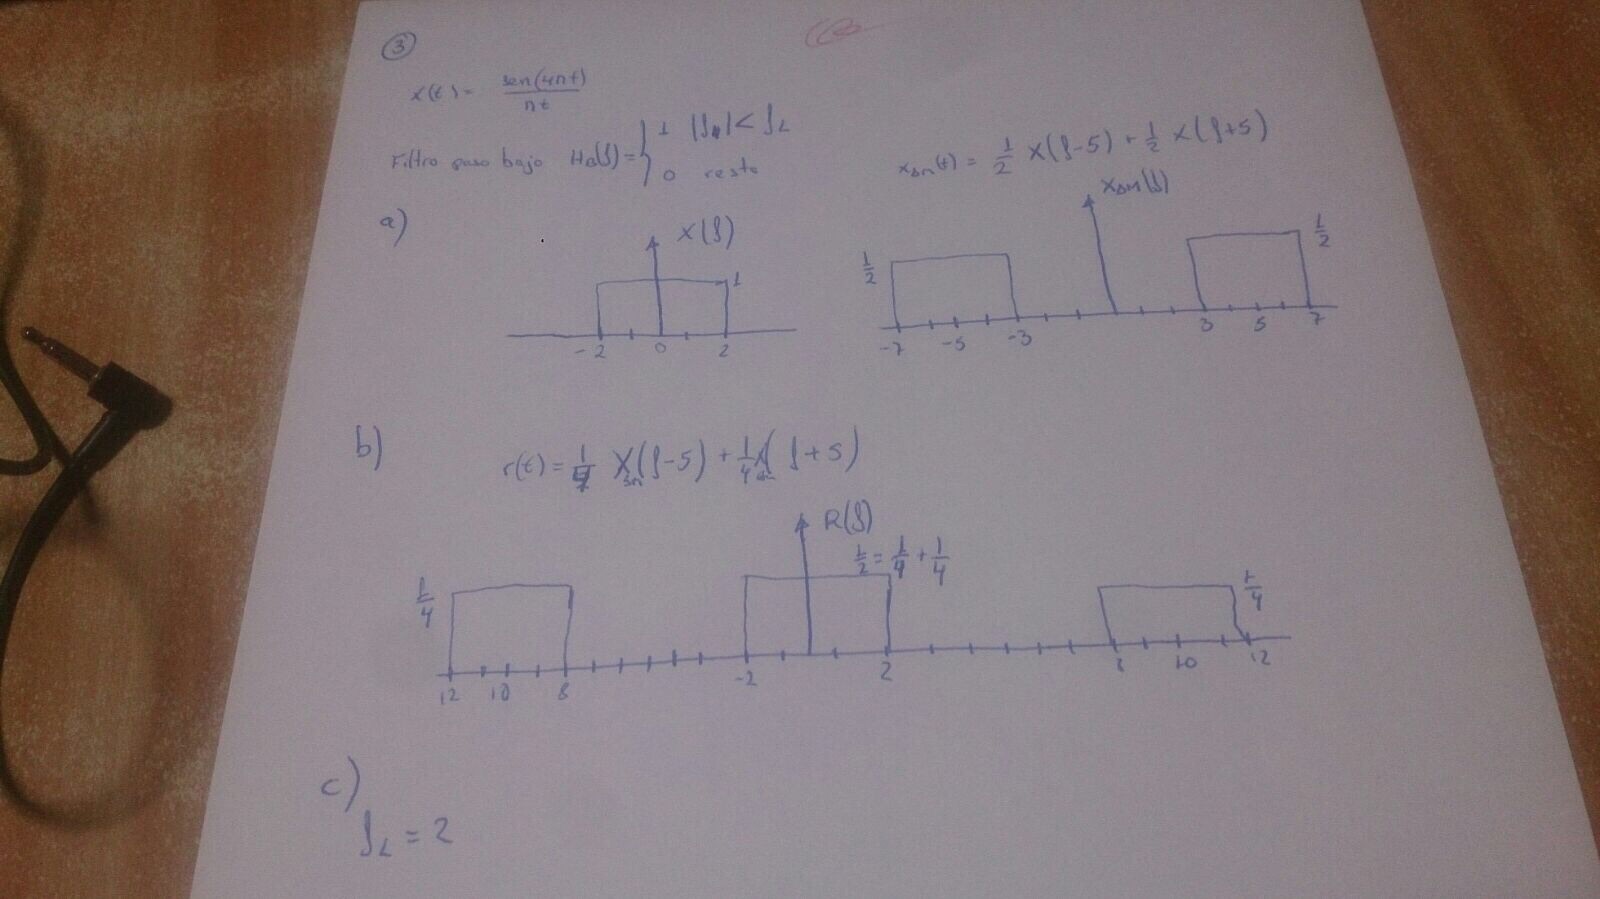 3
x(t) = sen(4πt) / πt
Filtro paso bajo H_B(f) = { 1 |f| < f_L
0 resto
x_AM(t) = 1/2 X(f-5) + 1/2 X(f+5)
a)
X(f)
1
-2 0 2
X_AM(f)
1/2 1/2
-7 -5 -3 3 5 7
b)
r(t) = 1/4 X(f-5) + 1/4 X(f+5)
R(f)
1/2 = 1/4 + 1/4
1/4 1/4
12 10 8 -2 2 8 10 12
c)
f_L = 2